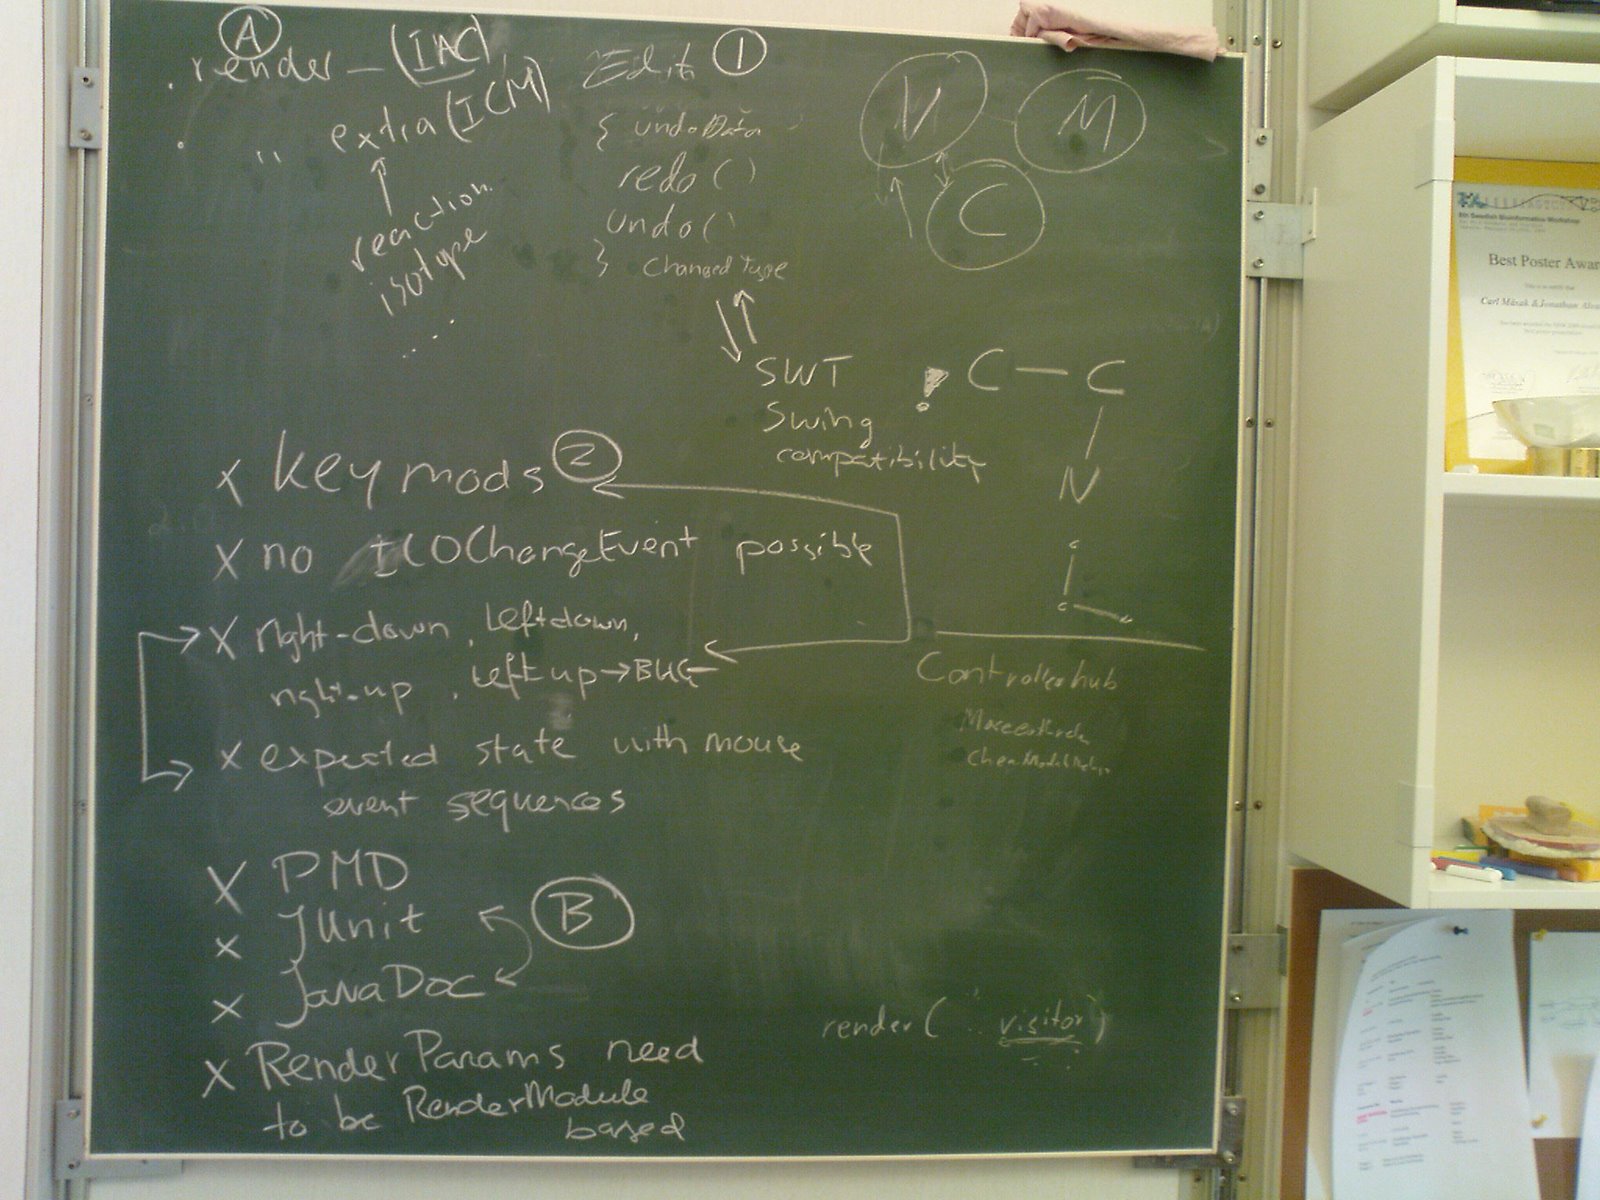 A
. render - (IAC),
. " extra (ICM)
reaction
isotype
....
Edit 1
{ undoData
redo ()
undo (
} changedType
V M
C
SWT
Swing
compatibility
! C — C
N
C
C
x key mods 2
x no ICOChangeEvent possible
x right-down, Left down,
right-up, Left up → BUG
x expected state with mouse
event sequences
Controllerhub
x PMD
x JUnit
B
x JavaDoc
x RenderParams need
to be RenderModule
based
render( .. visitor)
Best Poster Awar
Carl Mäsak & Jonathan